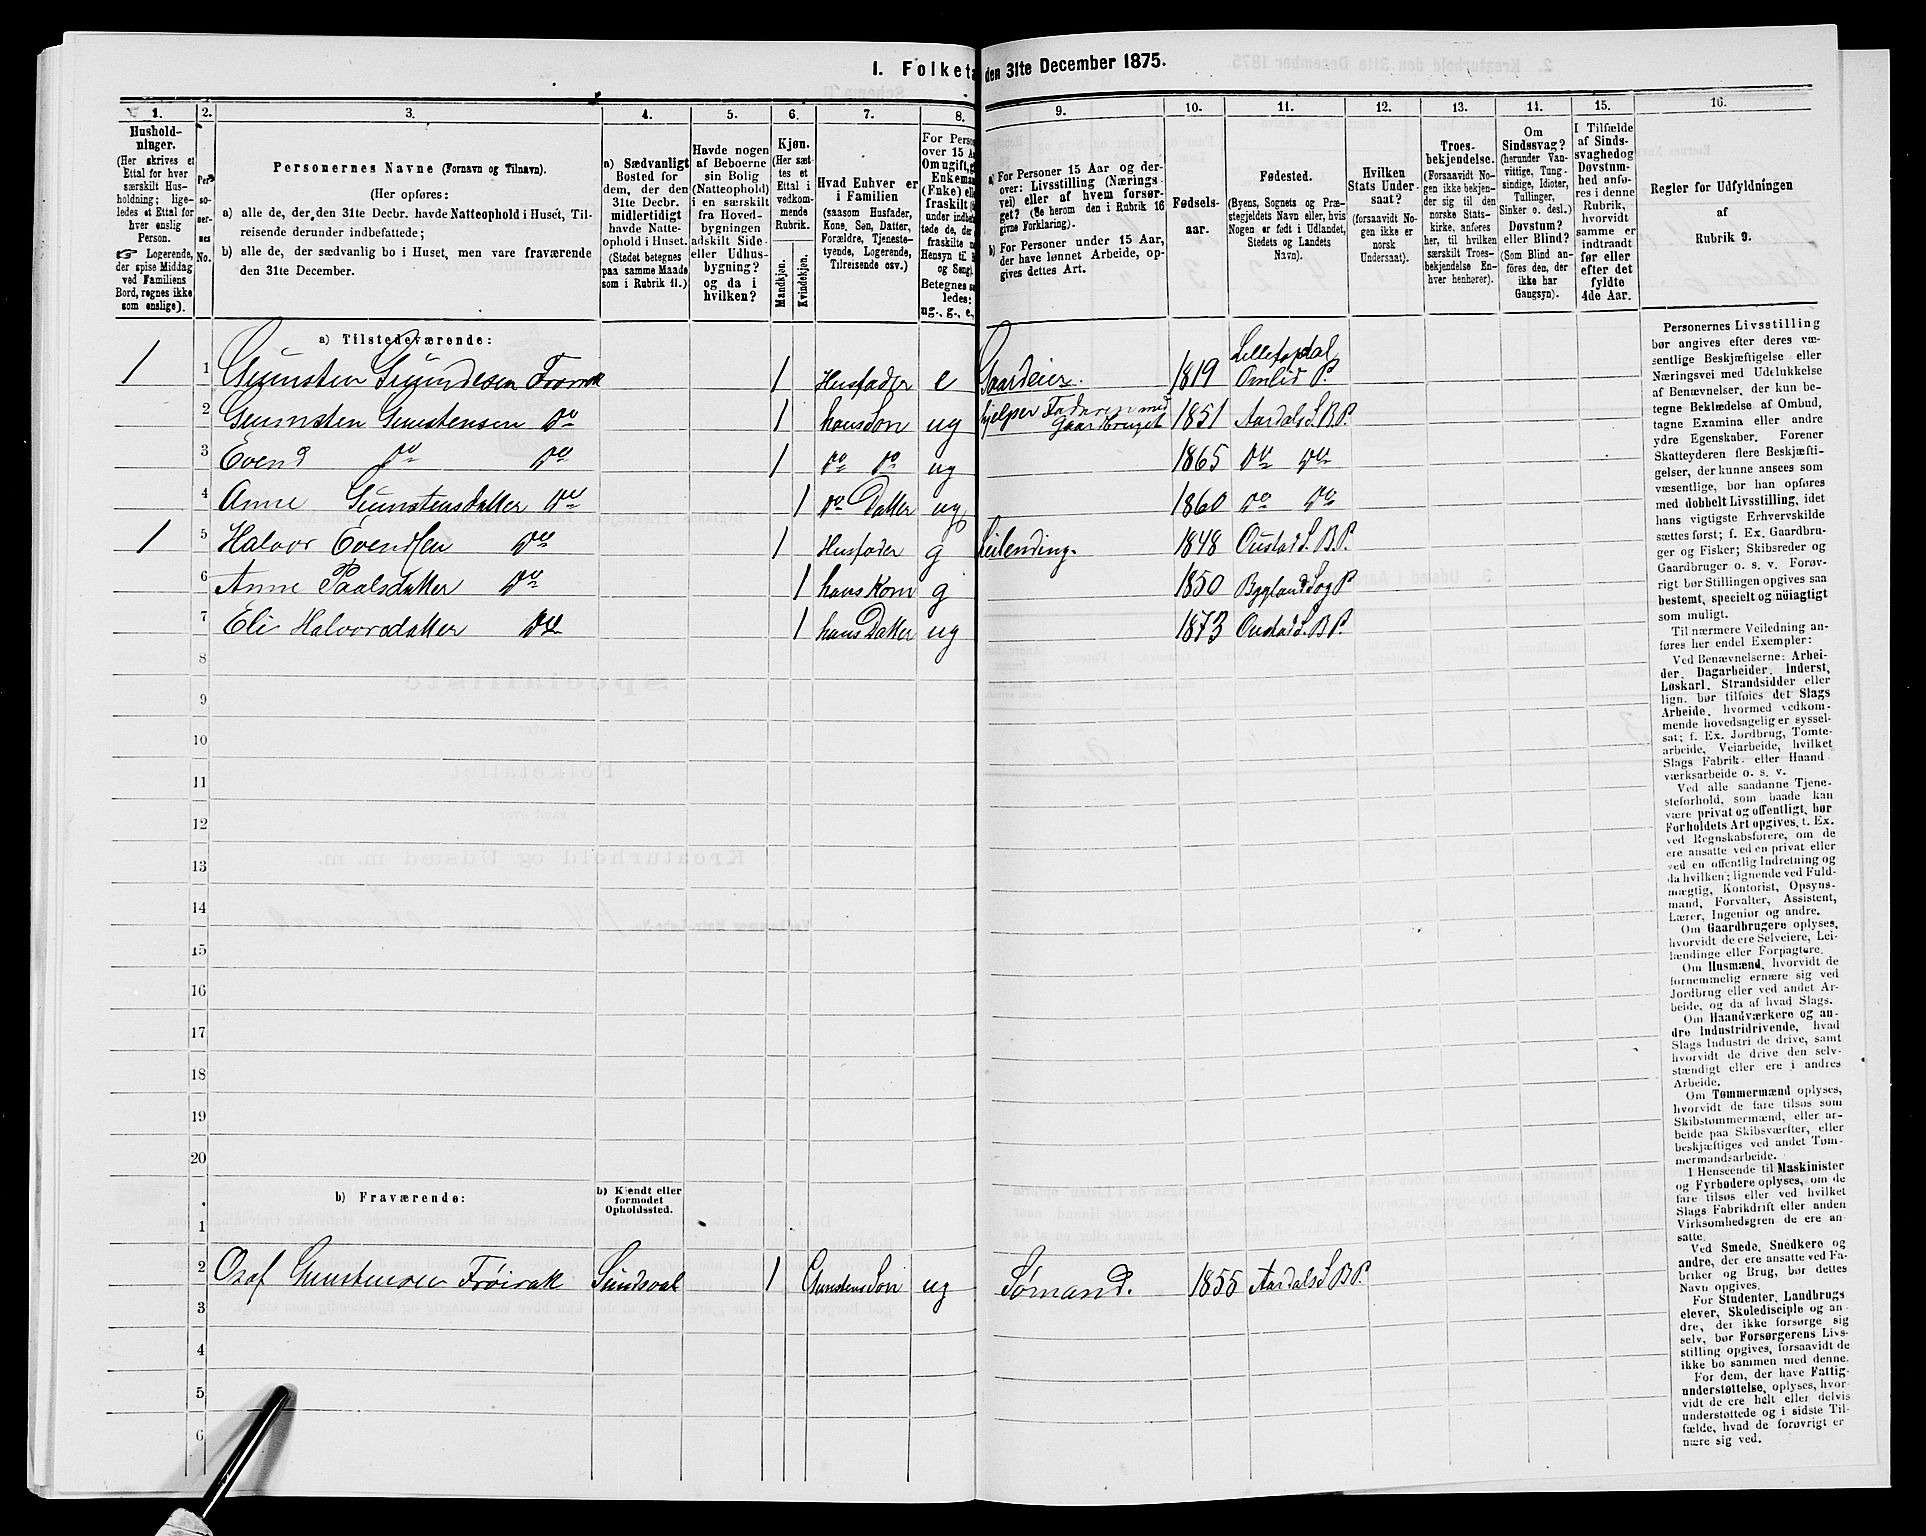 1. Folketa
den 31te December 1875.
1. 2. 3. 4. 5. 6. 7. 8. 9. 10. 11. 12. 13. 14. 15. 16.
Hushold-
ninger.
(Her skrives et
Ettal for hver
særskilt Hus-
holdning; lige-
ledes et Ettal for
hver enslig
Person.
☞ Logerende,
der spise Middag
ved Familiens
Bord, regnes ikke
som enslige).
Per-
so-
ner-
nes
No.
Personernes Navne (Fornavn og Tilnavn).
(Her opføres:
a) alle de, der den 31te Decbr. havde Natteophold i Huset, Til-
reisende derunder indbefattede;
b) alle de, der sædvanlig bo i Huset, men vare fraværende
den 31te December.
a) Sædvanligt
Bosted for
dem, der den
31te Decbr.
midlertidigt
havde Natte-
ophold i Huset.
(Stedet betegnes
paa samme Maade
som i Rubrik 11.)
Havde nogen
af Beboerne
sin Bolig
(Natteophold)
i en særskilt
fra Hoved-
bygningen
adskilt Side-
eller Udhus-
bygning?
og da i
hvilken?
Kjøn.
(Her sæt-
tes et
Ettal i
vedkom-
mende
Rubrik.
Mandkjøn.
Kvindekjøn.
Hvad Enhver er
i Familien
(saasom Husfader,
Kone, Søn, Datter,
Forældre, Tjeneste-
tyende, Logerende,
Tilreisende osv.)
For Perso
over 15 Aa
Om ugift, g
Enkeman
(Fake) elle
fraskilt (
under indbe
tede de, der
fraskilte m
Hensyn til B
og Seng).
Betegnes sa
ledes:
ug., g., e.,
a) For Personer 15 Aar og der-
over: Livsstilling (Nærings
vei) eller af hvem forsør-
get? (Se herom den i Rubrik 16
givne Forklaring).
b) For Personer under 15 Aar,
der have lønnet Arbeide, op-
gives dettes Art.
Fødsels-
aar.
Fødested.
(Byens, Sognets og Præ-
stegjeldets Navn eller, hvis
Nogen er født i Udlandet,
Stedets og Landets
Navn).
Hvilken
Stats Under-
saat?
(forsaavidt No-
gen ikke er
norsk
Undersaat).
Troes-
bekjendelse.
(Forsaavidt No-
gen ikke bekjen-
der sig til den
norske Stats-
kirke, anføres
her, til hvilken
særskilt Troes-
bekjendelse En-
hver henhører).
Om
Sindssvag?
(herunder Van-
vittige, Tung-
sindige, Idioter,
Tullinger,
Sinker o. desl.)
Døvstum?
eller Blind?
(Som Blind an-
føres den, der
ikke har
Gangsyn).
I Tilfælde
af Sinds-
svaghed og
Døvstum-
hed anfø-
res i denne
Rubrik,
hvorvidt
samme er
indtraadt
før eller
efter det
fyldte
4de Aar.
Regler for Udfyldningen
af
Rubrik 9.
a) Tilstedeværende:
1 1 Gunsten Gundesen Frøirak 1 Husfader e Gaardeier. 1819 Omlid P.
2 Gunsten Gunstensen Do 1 hans Søn ug hjelper Faderen med Gaardbruget 1851 Aardals S. B P.
3 Evend Do Do 1 Do Do ug 1865 Do Do
4 Anne Gunstensdatter Do 1 Do Datter ug 1860 Do Do
1 5 Halvor Evendsen Do 1 Husfader g Leilending. 1848 Oustad S. B. P.
6 Anne Paalsdatter Do 1 hans Kone g 1850 Bygland Sog P.
7 Eli Halvorsdatter Do 1 hans Datter ug 1873 Oustad S. B P.
8
9
10
11
12
13
14
15
16
17
18
19
20
b) Fraværende:
b) Kjendt eller
formodet
Opholdssted.
1
2 Osof Gunstensen Frøirak Sundsval 1 Gunstens Søn ug Sømand. 1855 Aardals S B P.
3
4
5
6
Personernes Livsstilling
bør angives efter deres væ-
sentlige Beskjæftigelse eller
Næringsvei med Udelukkelse
af Benævnelser, der kun be-
tegne Beklædelse af Ombud,
tagne Examina eller andre
ydre Egenskaber. Forener
Skatteyderen flere Beskjæfti-
gelser, der kunne ansees som
væsentlige, bør han opføres
med dobbelt Livsstilling, idet
hans vigtigste Erhvervskilde
sættes først; f. Ex. Gaardbru-
ger og Fisker; Skibsreder og
Gaardbruger o. s. v. Forøv-
rigt bør Stillingen opgives saa
bestemt, specielt og nöiagtigt
som muligt.
Til nærmere Veiledning an-
føres her endel Exempler:
Ved Benævnelserne: Arbei-
der, Dagarbeider, Inderst,
Løskarl, Strandsidder eller
lign. bør tilføies det Slags
Arbeide, hvormed vedkom-
mende hovedsagelig er syssel-
sat; f. Ex. Jordbrug, Tomte-
arbeide, Veiarbeide, hvilket
Slags Fabrik- eller Haand
værksarbeide o. s. v.
Ved alle saadanne Tjene-
steforhold, som baade kan
være privat og offentligt, bør
Forholdets Art opgives, t. Ex.
ved Regnskabsførere, om de
ere ansatte ved en privat eller
ved en offentlig Indretning og
da hvilken; lignende ved Fuld-
mægtig, Kontorist, Opsyns-
mand, Forvalter, Assistent,
Lærer, Ingeniør og andre.
Om Gaardbrugere oplyses,
hvorvidt de ere Selveiere, Lei-
lændinge eller Forpagtere.
Om Husmænd, hvorvidt de
fornemmelig ernære sig ved
Jordbrug eller ved andet Ar-
beide, og da af hvad Slags.
Om Haandværkere og an-
dre Industridrivende, hvad
Slags Industri de drive, samt
hvorvidt de drive den selv-
stændigt eller ere i andres
Arbeide.
Om Tømmermænd oplyses,
hvorvidt de fare tilsøs som
Skibstømmermænd, eller ar-
beide paa Skibsværfter, eller
beskjæftiges ved andet Tøm-
mermandsarbeide.
I Henseende til Maskinister
og Fyrbødere oplyses, om de
fare tilsøs eller ved hvilket
Slags Fabrikdrift eller anden
Virksomhedsgren de ere an-
satte.
Ved Smede, Snedkere og
andre, der ere ansatte ved Fa-
briker og Brug, bør dettes
Navn opgives.
For Studenter, Landbrugs
elever, Skoledisciple og an-
dre, der ikke forsørge sig
selv, bør Forsørgerens Livs-
stilling opgives, forsaavidt de
ikke bo sammen med denne.
For dem, der have Fattig-
understøttelse, oplyses, hvor-
vidt de ere helt eller delvis
understøttede og i sidste Til-
fælde, hvad de forøvrigt er
nære sig ved.